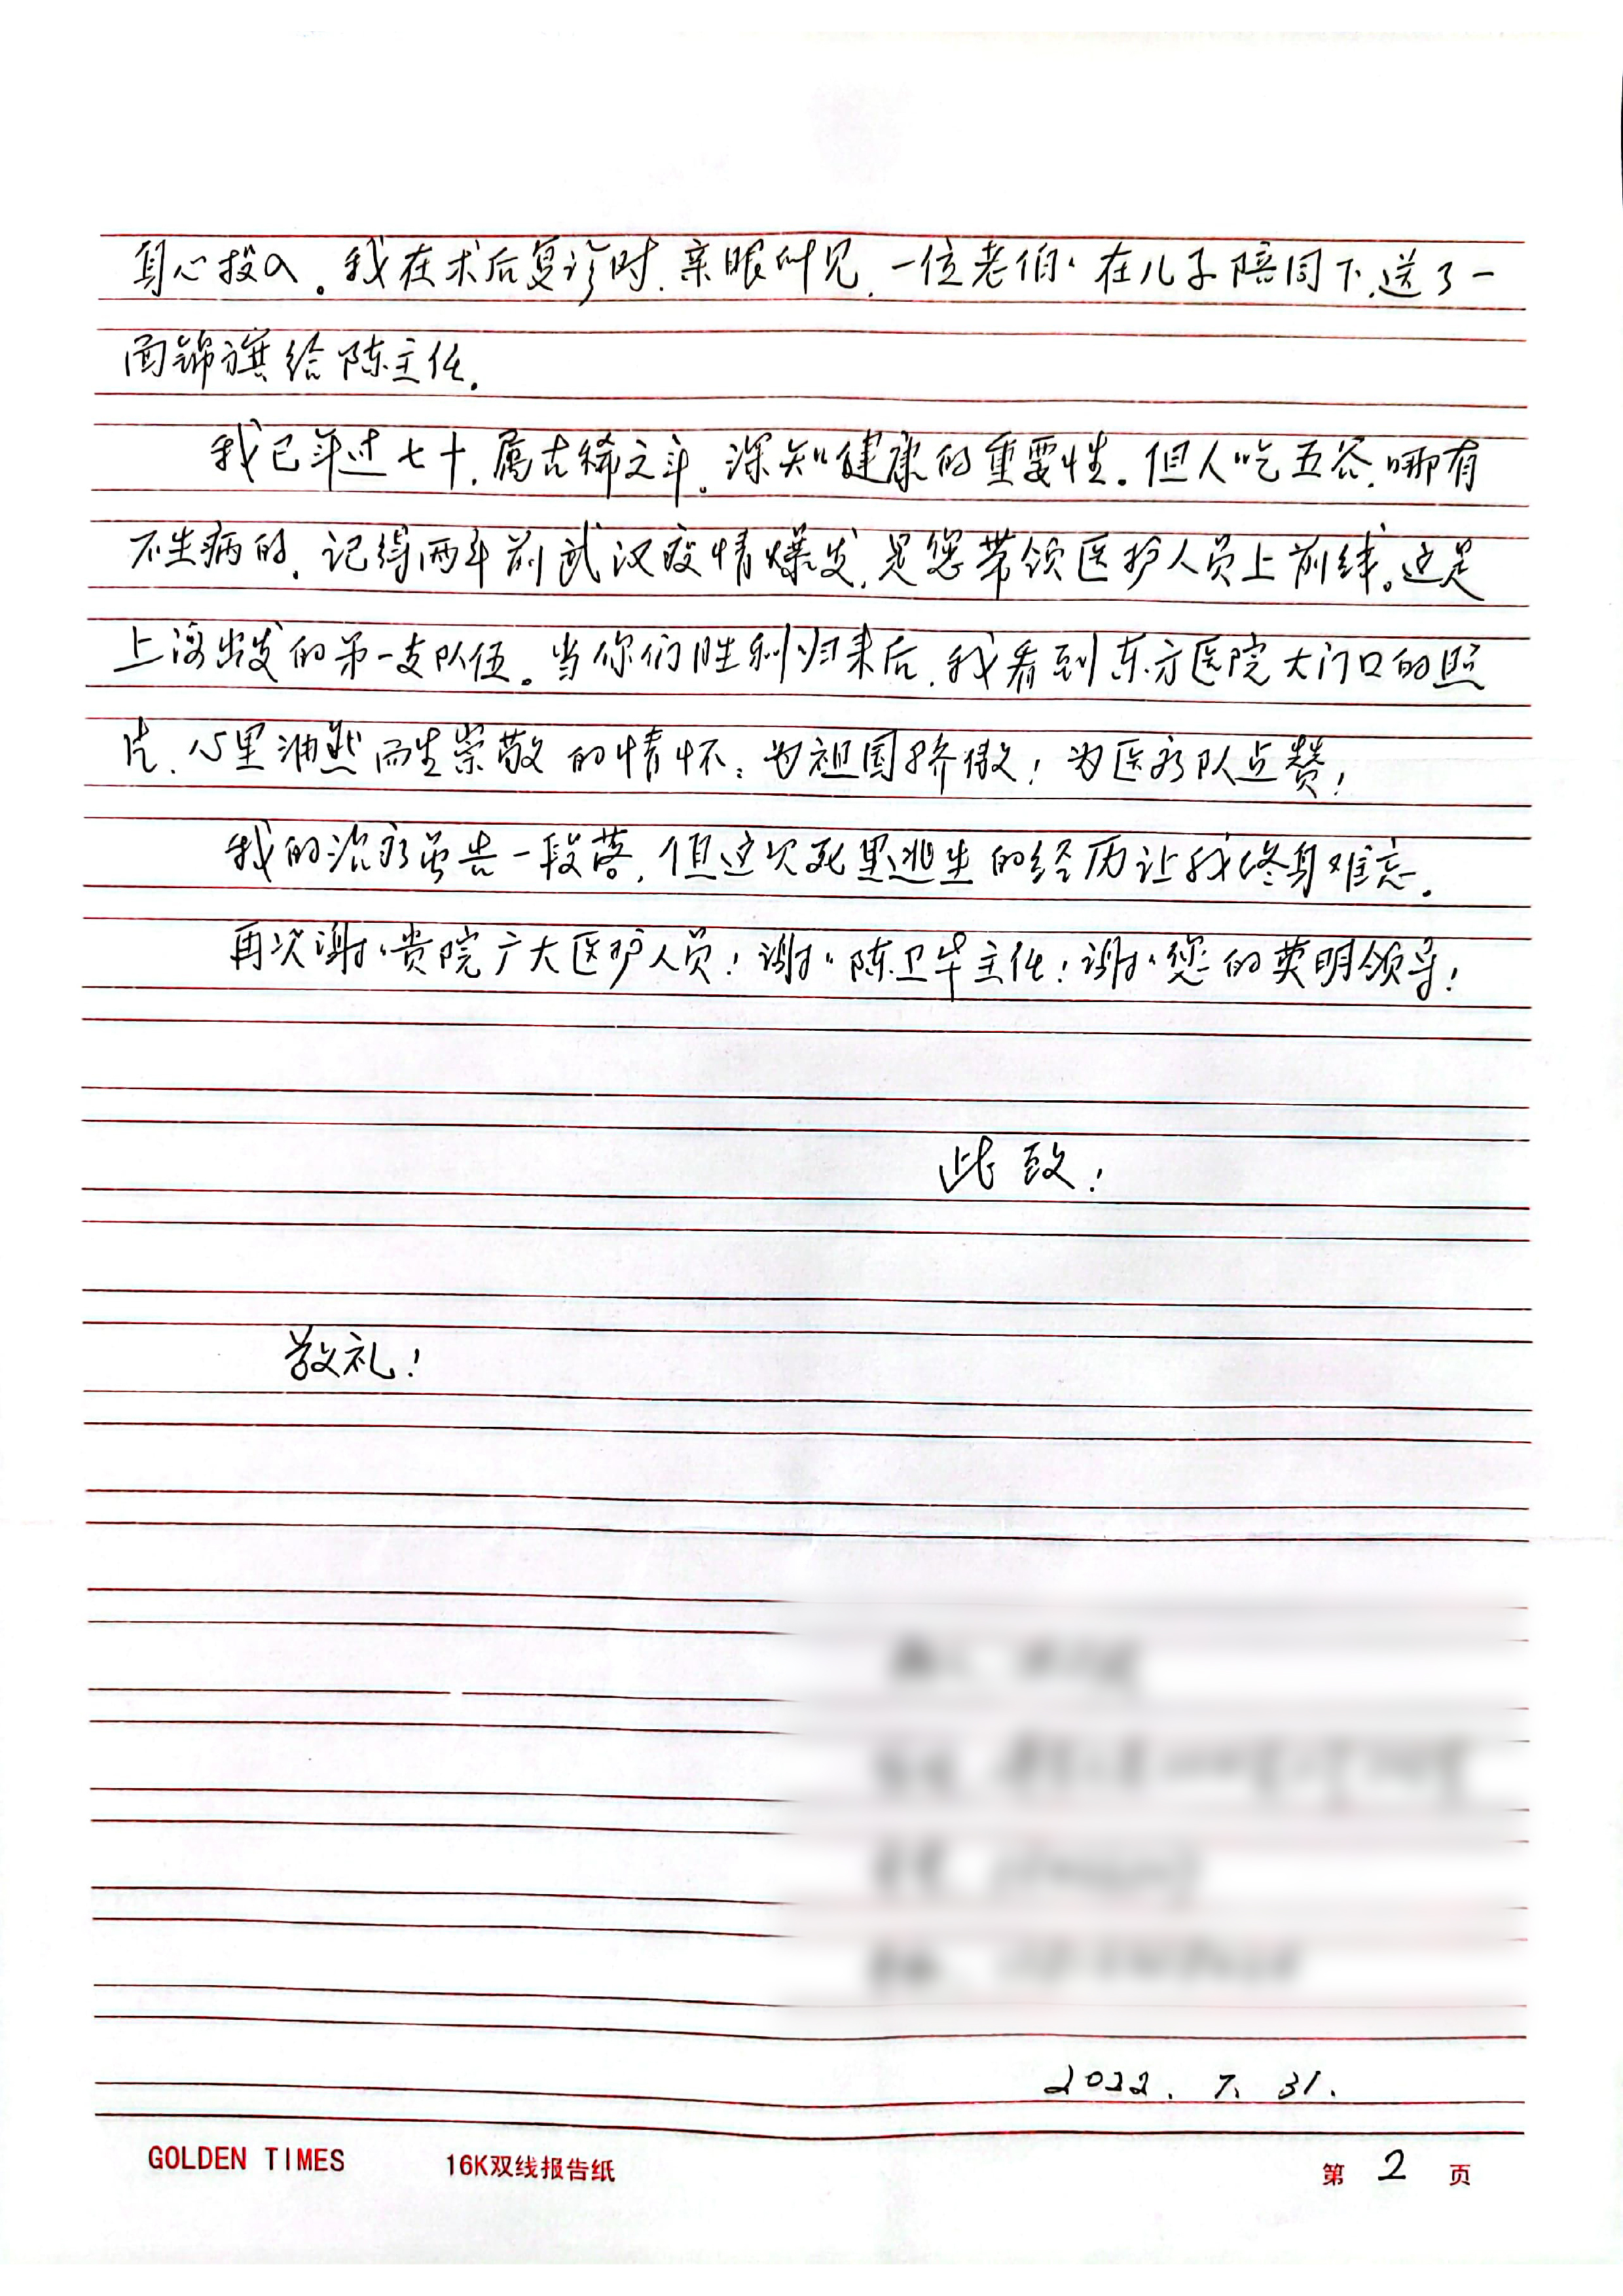 身心投入。我在术后复诊时,亲眼所见,一位老伯伯在儿子陪同下,送了一
面锦旗给陈主任。
我已年过七十,属古稀之年。深知健康的重要性。但人吃五谷,哪有
不生病的,记得两年前武汉疫情爆发,是您带领医护人员上前线。这是
上海出发的第一支队伍。当你们胜利归来后,我看到东方医院大门口的照
片,心里油然而生崇敬的情怀:为祖国骄傲!为医疗队点赞!
我的治疗虽告一段落,但这次死里逃生的经历让我终身难忘。
再次谢谢贵院广大医护人员!谢谢陈卫华主任!谢谢您的英明领导!
此致!
敬礼!
2022.7.31.
GOLDEN TIMES 16K双线报告纸 第 2 页